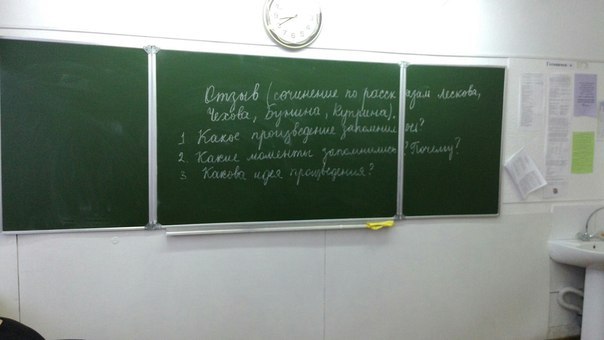 Отзыв (сочинение по рассказам Лескова,
Чехова, Бунина, Куприна).
1 Какое произведение запомнилось?
2. Какие моменты запомнились? Почему?
3 Какова идея произведения?